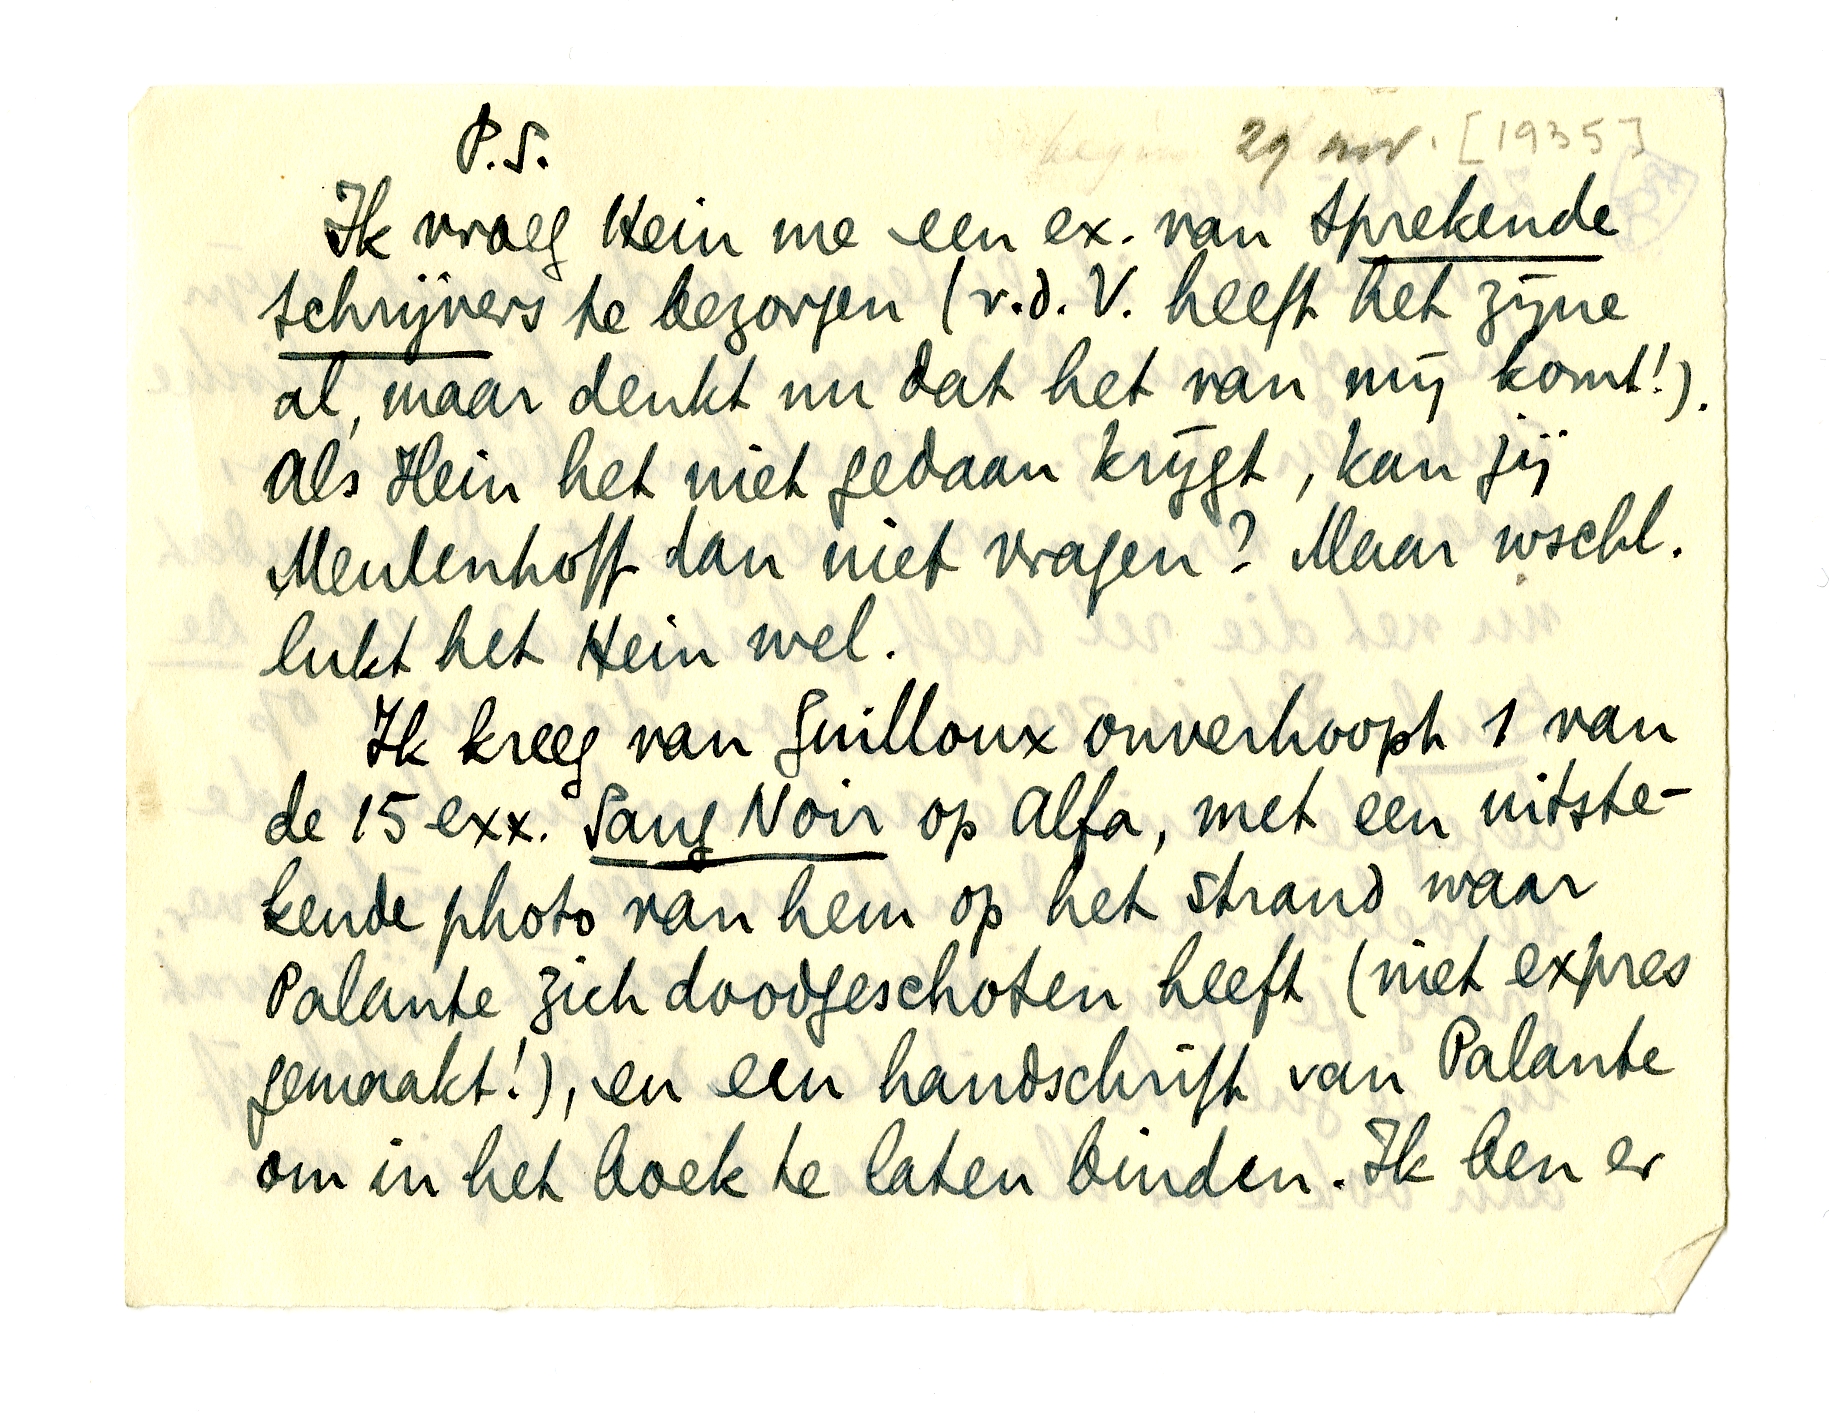 P.S.
29 nov. [1935]
Ik vroeg Hein me een ex. van Sprekende
Schrijvers te bezorgen (v.d.V. heeft het zijne
al, maar denkt nu dat het van mij komt!).
Als Hein het niet gedaan krijgt, kan jij
Meulenhoff dan niet vragen? Maar wschl.
lukt het Hein wel.
Ik kreeg van Guilloux onverhoopt 1 van
de 15 exx. Sang Noir op Alfa, met een uitste-
kende photo van hem op het strand waar
Palante zich doodgeschoten heeft (niet expres
gemaakt!), en een handschrift van Palante
om in het boek te laten binden. Ik ben er